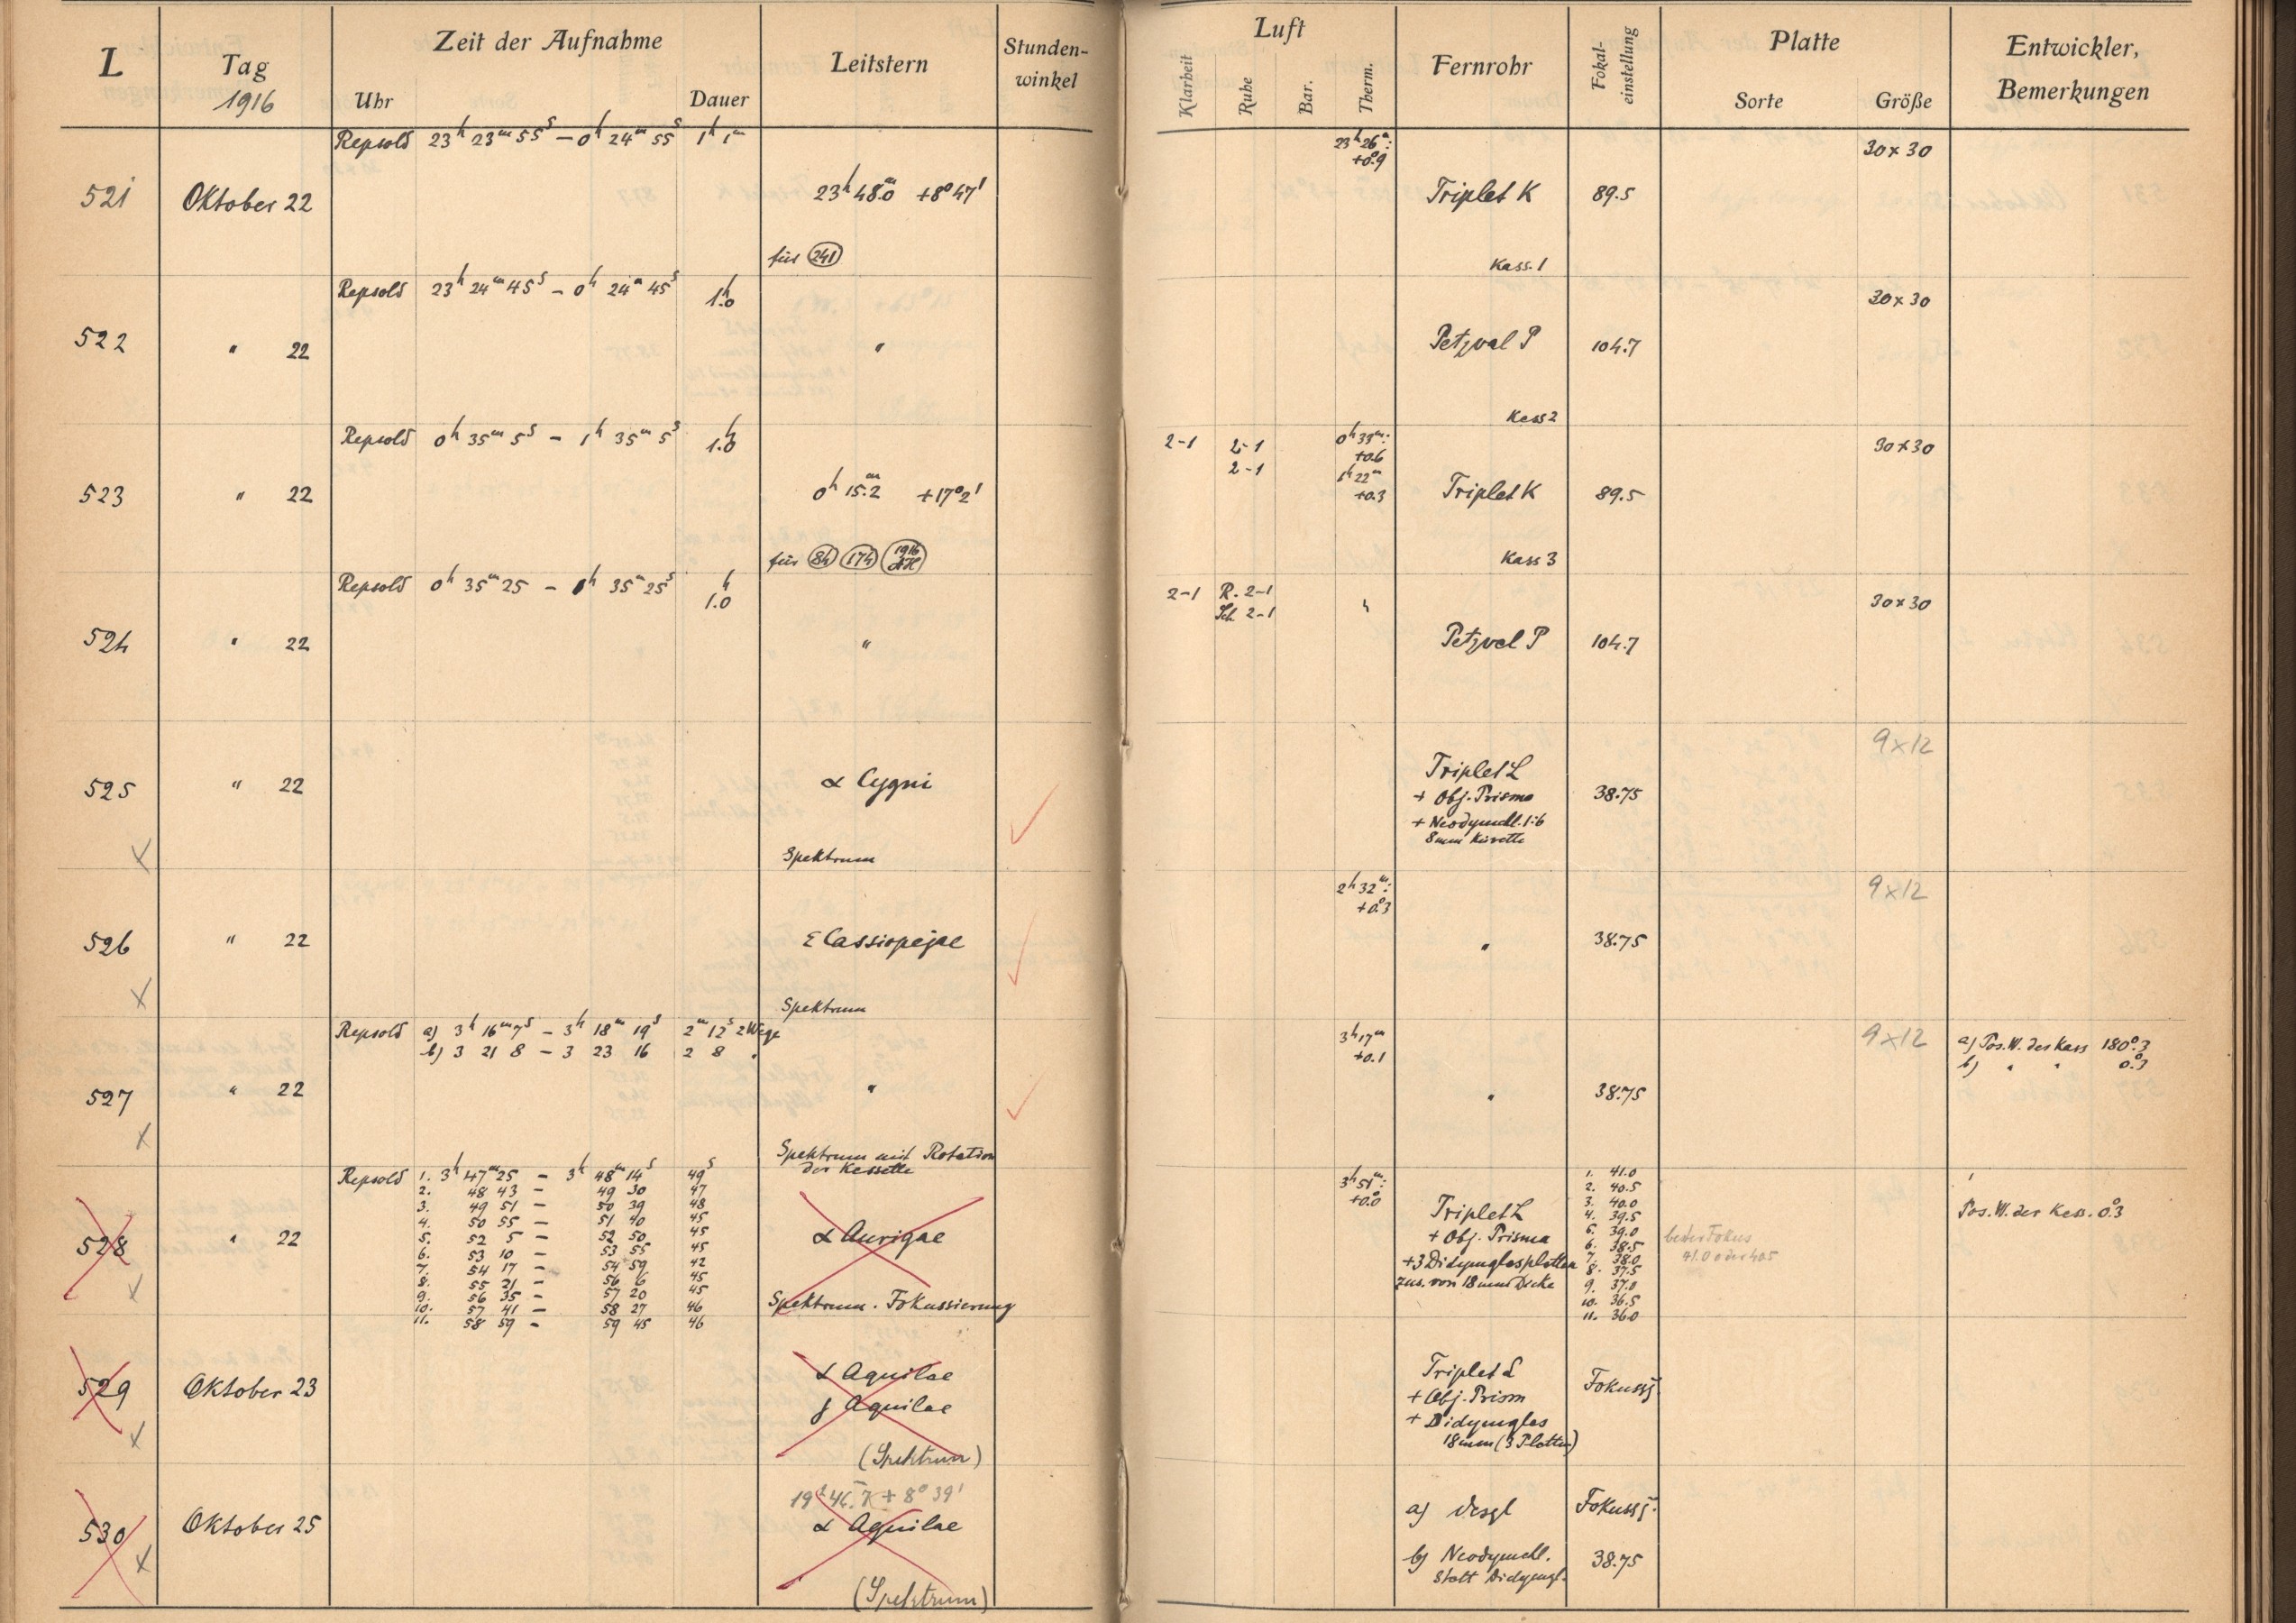 L Tag 1916 Zeit der Aufnahme Uhr Dauer Leitstern Stunden-winkel Luft Klarheit Ruhe Bar. Therm. Fernrohr Fokal-einstellung Platte Sorte Größe Entwickler, Bemerkungen
Repsold 23h 23m 55s – 0h 24m 55s 1h 1m 23h 26m: +0.°9 30 x 30
521 Oktober 22 23h 48.m0 +8° 47' Triplet K 89.5
für 241 Kass. 1
Repsold 23h 24m 45s – 0h 24m 45s 1.h0 30 x 30
522 " 22 " Petzval P 104.7
Kass 2
Repsold 0h 35m 5s – 1h 35m 5s 1.h0 2-1 2-1 0h 33m: +0.6 30 x 30
2-1 1h 22m +0.3
523 " 22 0h 15.m2 +17° 2' Triplet K 89.5
für 84 174 1916 Kass 3
Repsold 0h 35m 25 – h 35m 25s 1.h0 2-1 R. 2-1 " 30 x 30
Sch. 2-1
524 " 22 " Petzval P 104.7
9 x 12
525 " 22 α Cygni Triplet L
+ Obj. Prisma 38.75
+ Neodymchl. 1:6
8mm Küvette
Spektrum
2h 32m: +0.°3 9 x 12
526 " 22 ε Cassiopejae " 38.75
Spektrum
Repsold a) 3h 16m 7s – 3h 18m 19s 2m 12s 2 Wege 3h 17m +0.1 9 x 12 a) Pos. W. der Kass 180.°3
b) 3 21 8 – 3 23 16 2 8 " b) " " 0.°3
527 " 22 " " 38.75
Spektrum mit Rotation
der Kassette
Repsold 1. 3h 47m 25 – 3h 48m 14s 49s 3h 51m: +0.°0 1. 41.0
2. 48 43 – 49 30 47 2. 40.5
3. 49 51 – 50 39 48 Triplet L 3. 40.0 Pos. W. der Kass. 0.°3
4. 50 55 – 51 40 45 4. 39.5
528 " 22 5. 52 5 – 52 50 45 α Aurigae + Obj. Prisma 5. 39.0 bester Fokus
6. 53 10 – 53 55 45 6. 38.5 41.0 oder 40.5
7. 54 17 – 54 59 42 +3 Didymglasplatten 7. 38.0
8. 55 21 – 56 6 45 zus. von 18mm Dicke 8. 37.5
9. 56 35 – 57 20 45 Spektrum. Fokussierung 9. 37.0
10. 57 41 – 58 27 46 10. 36.5
11. 58 59 – 59 45 46 11. 36.0
529 Oktober 23 α Aquilae Triplet L Fokussg
γ Aquilae + Obj. Prism
+ Didymglas
(Spektrum) 18mm (3 Platten)
19h 46.7 + 8° 39'
530 Oktober 25 α Aquilae a) desgl Fokussg.
b) Neodymchl. 38.75
statt Didymgl.
(Spektrum)